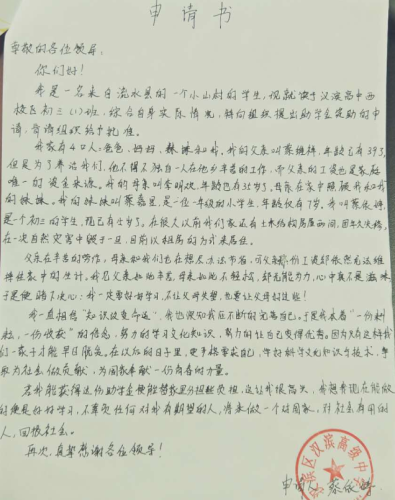 申请书
尊敬的各位领导:
你们好!
我是一名来自流水县的一个小山村的学生,现就读于汉滨高中西
校区初三(1)班,综合自身实际情况,特向组织提出助学金资助的申
请,背请组织给予批准。
我家有4口人,爸爸,妈妈,妹妹和我。我的父亲叫 年龄已有39了,
但是为了养活我们,他不得不独自一人在他乡辛苦的工作,而父亲的工资也是家庭
唯一的资金来源。我的母亲叫 年龄已有35岁了,母亲在家中照顾我和我
的妹妹。我的妹妹叫 是一位一年级的小学生,年龄仅有7岁。我叫
是个初三的学生,现已有十五岁了。在很久以前我们家还有土木结构房屋两间,因年久失修,
在一次自然灾害中毁于一旦,目前以租房的方式来居住。
父亲在辛苦的劳作,母亲和我们也在想尽办法节省,可父亲那份工资却依然无法维
持我家中的生计。我见父亲如此辛苦,母亲如此不轻松,却无能为力,心中真不是滋味
于是便暗下决心:我一定要好好学习,不让父母失望,也要让父母过好这一生!
我一直相信"知识改变命运",我也深知我应不断的完善自己。于是我本着"一份耕
耘,一份收获"的信念,努力的学习文化知识,努力的让自己变得优秀。因为只有这样我
们一家子才能早日脱贫。在以后的日子里,更严格要求自己,学好科学文化知识与技术,争
取为社会做贡献,为国家奉献一份自己的力量。
若我能获得这份助学金便能替我家分担些负担,这让我很高兴,我想我现在能做
的便是好好学习,不辜负任何对我有期望的人,将来做一个对国家,对社会有用的
人,回报社会。
再次,真挚感谢各位领导!
申请人:
滨区汉滨高级中